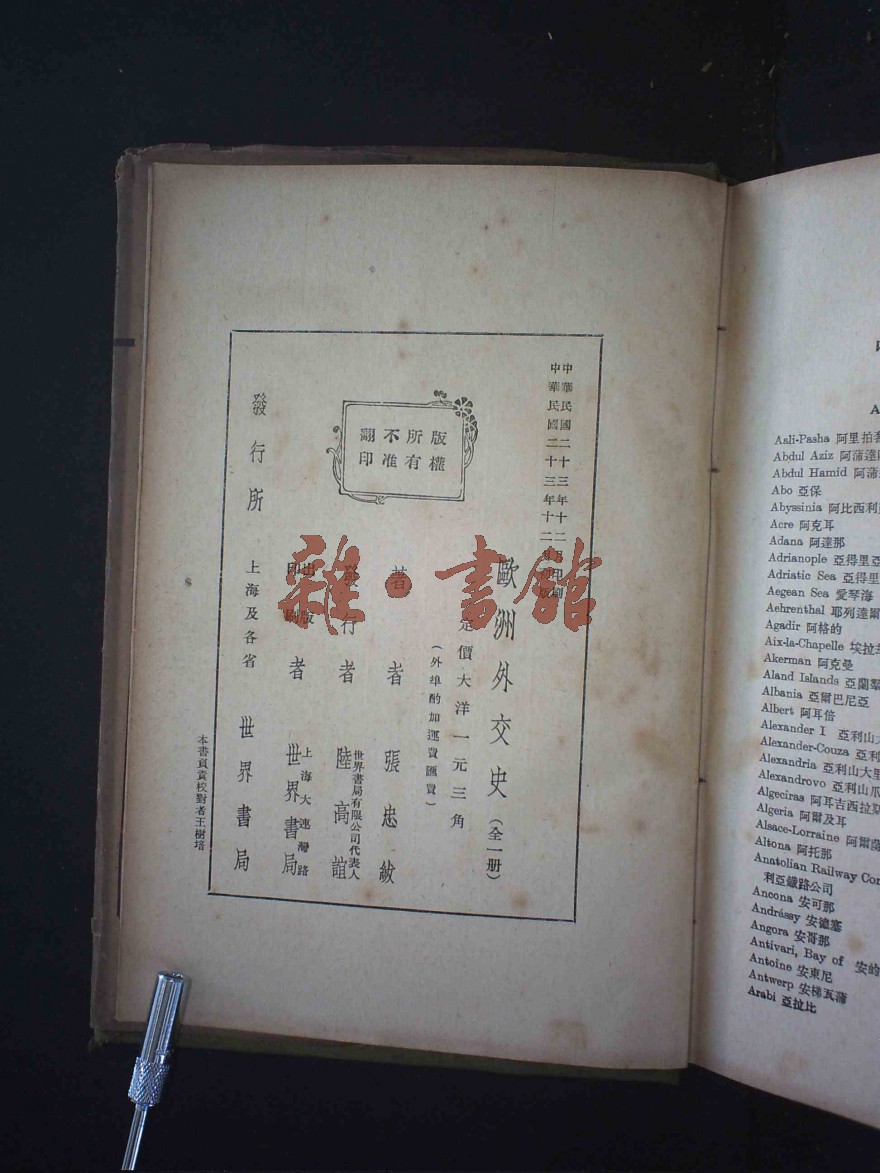 中華民國二十三年十二月印刷
中華民國二十三年十二月初版
歐洲外交史（全一册）
定價大洋一元三角
（外埠酌加運費匯費）
版權
所有
不准
翻印
著者 張忠紱
發行者 陸高誼
世界書局有限公司代表人
出版
印刷
者 世界書局
上海大連灣路
發行所 上海及各省 世界書局
本書負責校對者王樹培
雜·書館
A
Aali-Pasha 阿里拍
Abdul Aziz 阿蒲達
Abdul Hamid 阿蒲
Abo 亞保
Abyssinia 阿比西利
Acre 阿克耳
Adana 阿達那
Adrianople 亞得里亞
Adriatic Sea 亞得里
Aegean Sea 愛琴海
Aehrenthal 耶列達爾
Agadir 阿格的
Aix-la-Chapelle 埃拉
Akerman 阿克曼
Aland Islands 亞蘭
Albania 亞爾巴尼亞
Albert 阿耳倍
Alexander I 亞利山大
Alexander-Couza 亞利
Alexandria 亞利山大里
Alexandrovo 亞利山爪
Algeciras 阿耳吉西拉斯
Algeria 阿爾及耳
Alsace-Lorraine 阿爾薩
Altona 阿托那
Anatolian Railway Com
利亞鐵路公司
Ancona 安可那
Andrássy 安德塞
Angora 安哥那
Antivari, Bay of 安的
Antoine 安東尼
Antwerp 安梯瓦蒲
Arabi 亞拉比